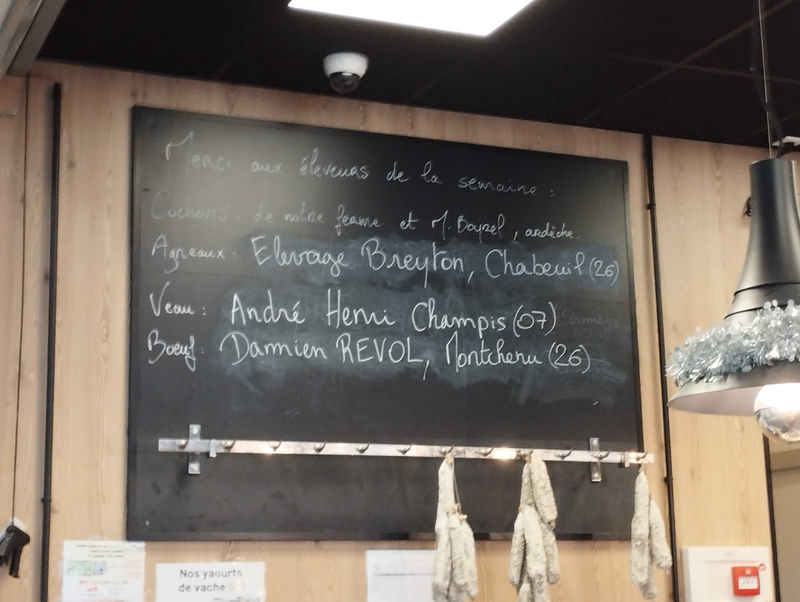 Merci aux éleveurs de la semaine :
Cochons : de notre ferme et M. Bayzel, ardèche.
Agneaux : Elevage Breyton, Chabeuil (26)
Veau : André Henri Champis (07)
Boeuf : Damien REVOL, Montchenu (26)
Nos yaourts
de vache